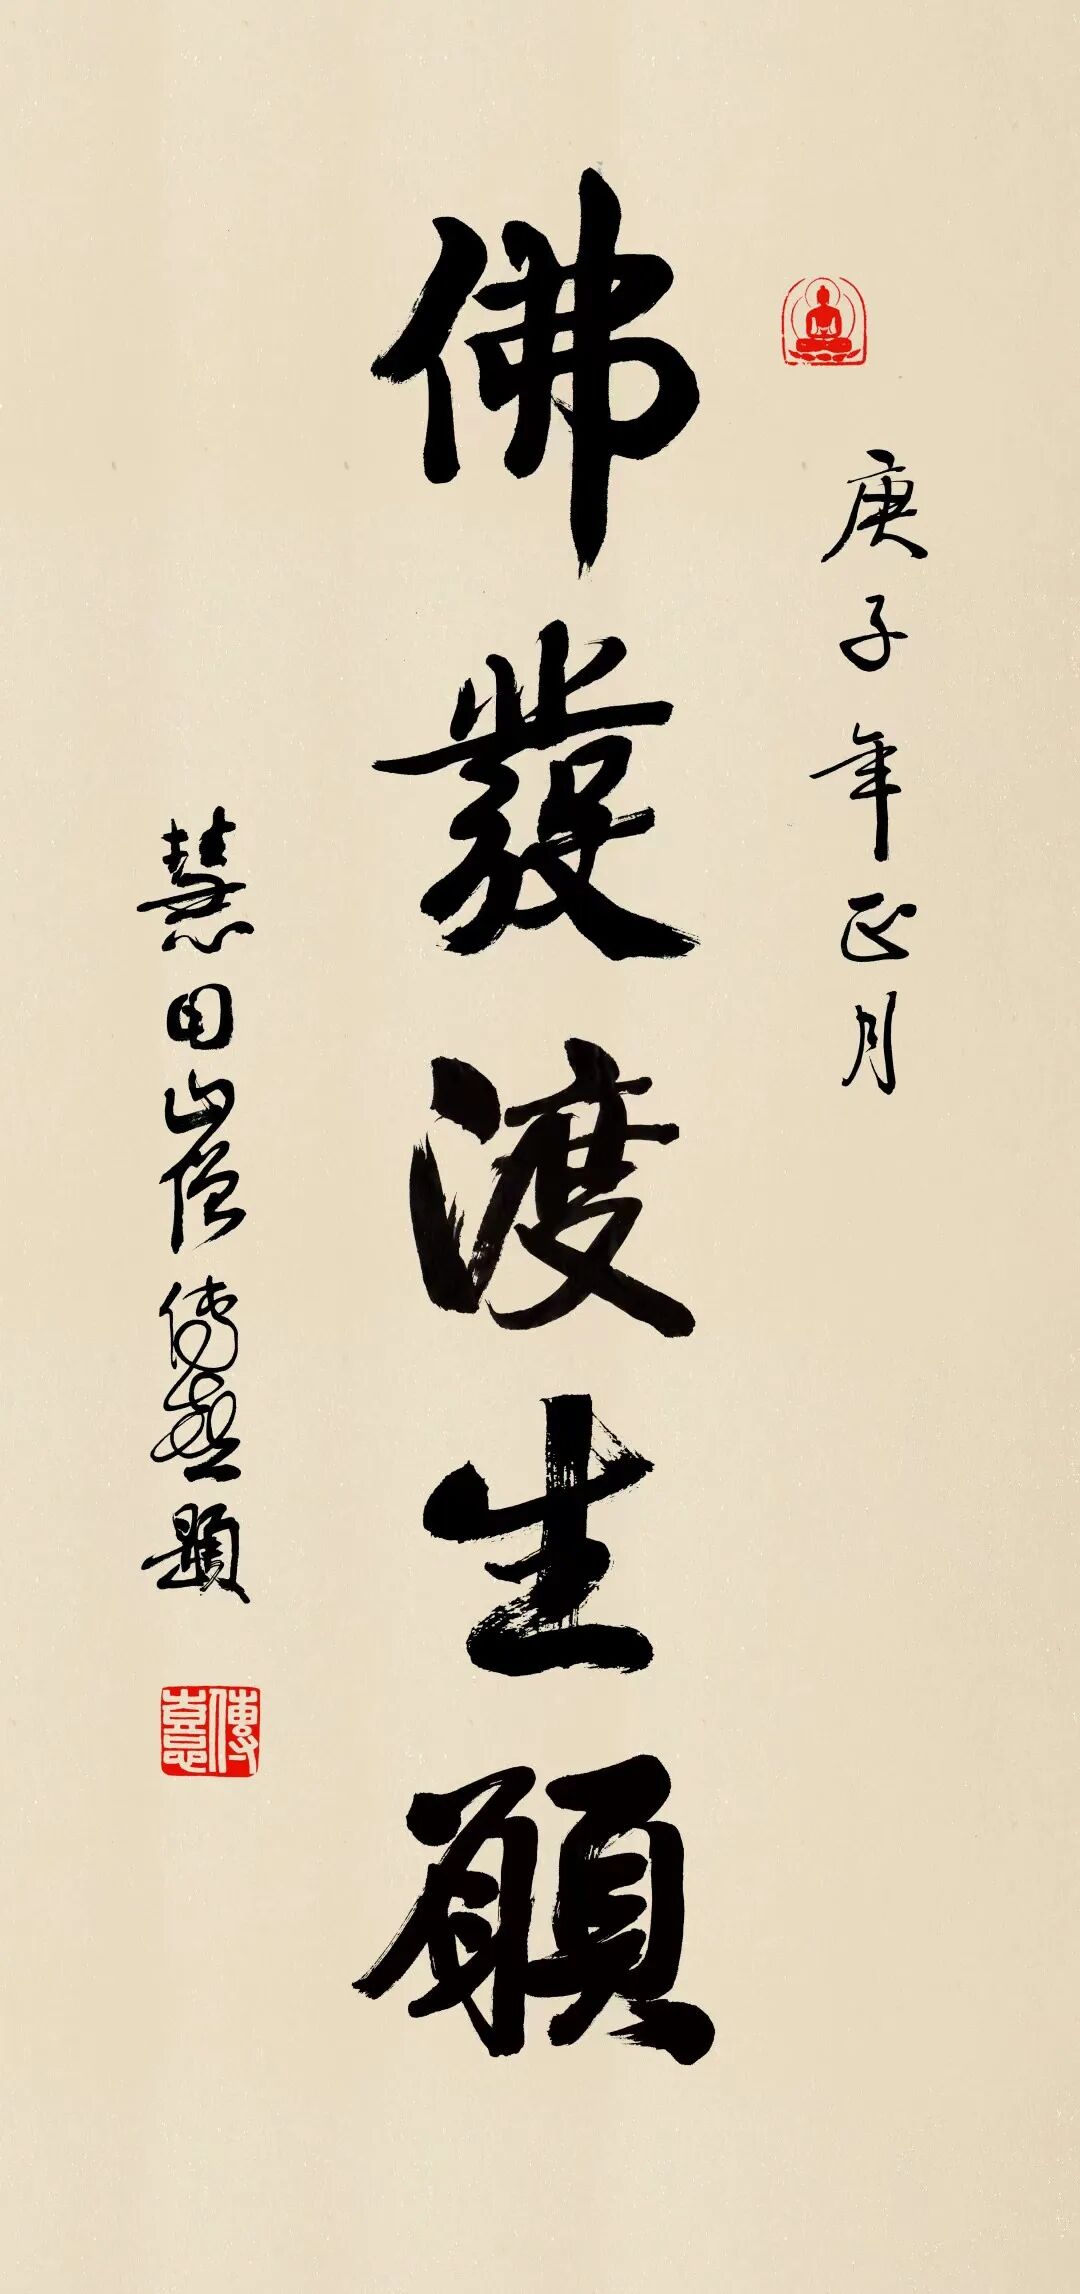 庚子年正月
佛發渡生願
慧日山僧傳喜題
傳憙